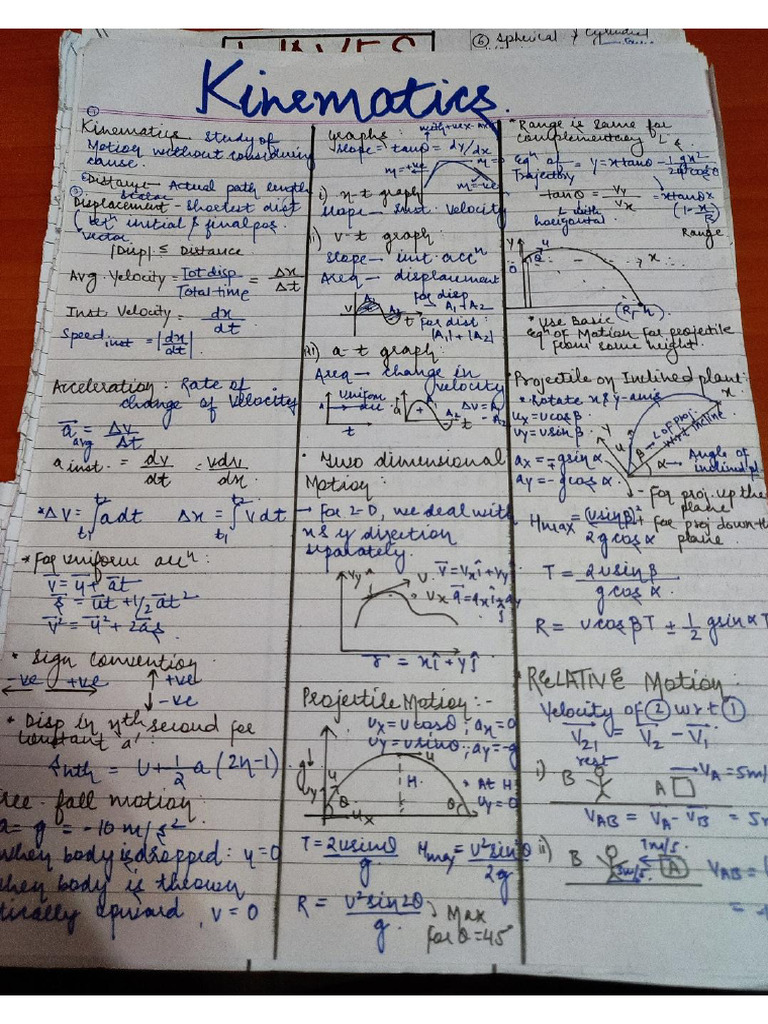 ⑥ Spherical & Cylindrical
WAVES
Kinematics.
Kinematics study of
Motion without considering
cause.
Distance - Actual path length
scalar
Displacement - shortest dist
(betn initial & final pos.
vector
|Disp| ≤ Distance
Avg. Velocity = Tot disp / Total time = Δx / Δt
Inst Velocity = dx / dt
Speed inst = |dx / dt|
Acceleration: Rate of
change of velocity
a avg = Δv / Δt
a inst. = dv / dt = vdv / dx
*Δv = ∫ t1 t2 adt Δx = ∫ t1 t2 vdt
* For uniform accn
v = u + at
s = ut + 1/2 at²
v² = u² + 2as
* Sign Convention
-ve +ve +ve
-ve
* Disp in nth second for
constant a'
Snth = u + 1/2 a (2n-1)
ree fall motion:
a = g = -10 m/s²
when body is dropped: u=0
when body is thrown
tically upward, v = 0
Graphs:
slope = tanθ = dy/dx
m=+ve m=0
m=-ve
i) x-t graph
slope - inst. velocity
ii) v-t graph:
slope - inst. accn
Area - displacement
V A1 A2 t
for disp
A1 - A2
for dist:
|A1| + |A2|
iii) a-t graph:
Area - change in
velocity
a Uniform acc t
a + A2 t ΔV = A1 - A2
* Two dimensional
Motion:
- For 2-D, we deal with
x & y direction
separately.
vy v v = vx i + vy
vx a = ax i + ay j
r = xi + yj
Projectile Motion:-
ux = u cosθ ; ax = 0
uy = u sinθ ; ay = -g
g↓ u H * At H
uy u θ θ vy = 0
ux
T = 2usinθ / g Hmax = u²sin²θ / 2g
R = u²sin2θ / g } Max
for θ=45°
* Range is same for
complementary L
Eqn of Trajectory = y = xtanθ - 1/2 gx² / u²cos²θ
tanθ = vy / vx = xtanθ (1 - x/R)
L with
horizontal Range
Y u x
O θ (R, h)
* Use Basic
Eqn of Motion for projectile
from some height.
* Projectile on Inclined plane:
* Rotate x & y-axis
ux = ucosβ
uy = usinβ
Y u β L of proj. wrt incline x
ax = ∓gsinα α → Angle of
ay = -gcosα inclined pl
- For proj. up the
plane
+ For proj down th
plane
Hmax = (usinβ)² / 2gcosα
T = 2usinβ / gcosα
R = ucosβT ± 1/2 gsinαT
* RELATIVE Motion:
Velocity of ② wrt ①
V21 = V2 - V1
i) B rest A → VA = 5m/
VAB = VA - VB = 5m
ii) B 3m/s 1m/s A VAB =